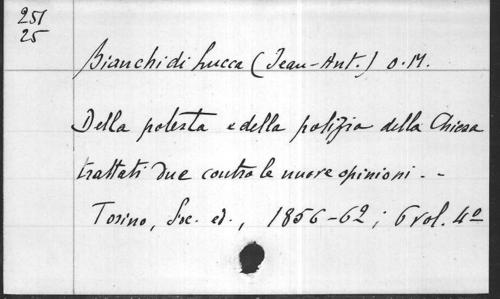 251
25
Bianchi di Lucca (Jean-Ant.) O.M.
Della potesta e della polizia della Chiesa
trattati due contro le nuove opinioni. -
Torino, ed., 1856-62; 6 vol. 4º